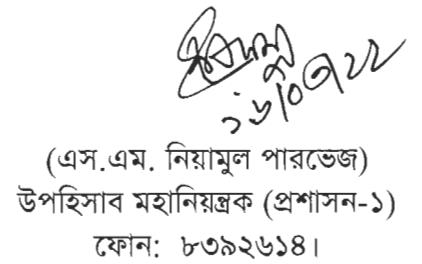 ১৬/০৩/২২
(এস.এম. নিয়ামুল পারভেজ)
উপহিসাব মহানিয়ন্ত্রক (প্রশাসন-১)
ফোন: ৮৩৯২৬১৪।